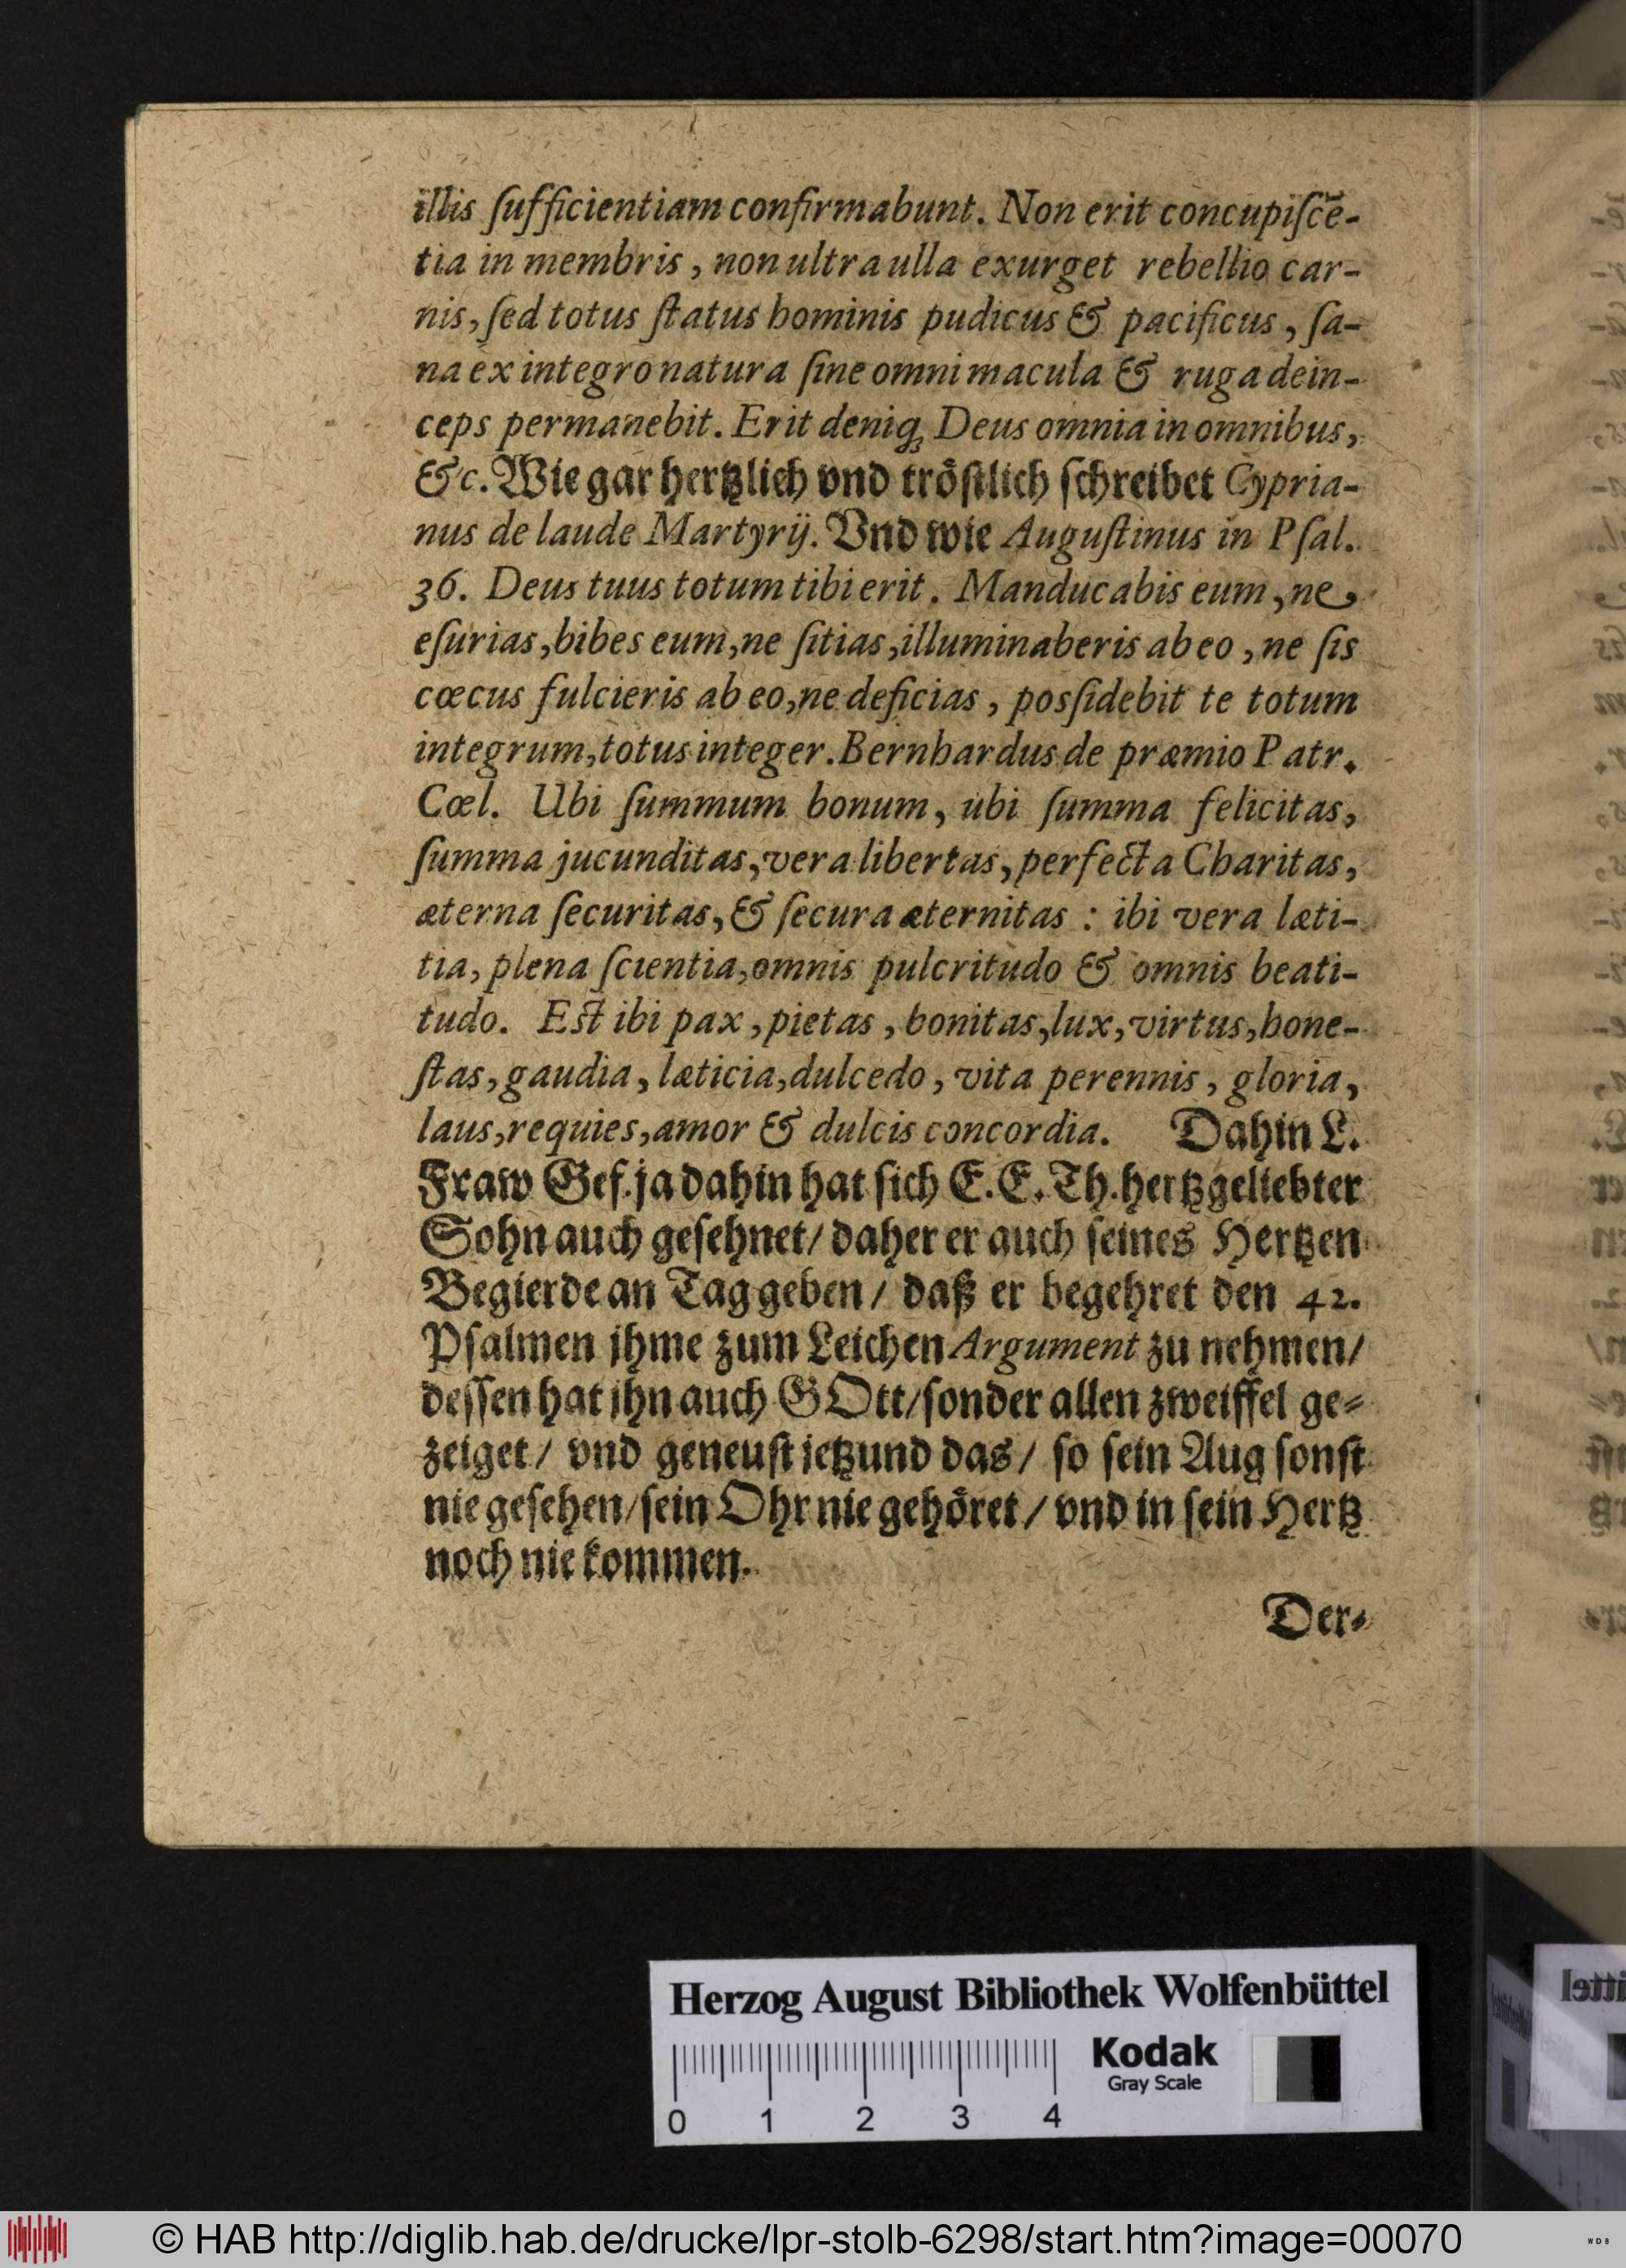 illis ſufficientiam confirmabunt. Non erit concupiſcẽ-
tia in membris, non ultra ulla exurget rebellio car-
nis, ſed totus ſtatus hominis pudicus & pacificus, ſa-
na ex integro natura ſine omni macula & ruga dein-
ceps permanebit. Erit deniq́; Deus omnia in omnibus,
&c. Wie gar hertzlich vnd tröſtlich ſchreibet Cypria-
nus de laude Martyrij. Vnd wie Auguſtinus in Pſal.
36. Deus tuus totum tibi erit. Manducabis eum, ne
eſurias, bibes eum, ne ſitias, illuminaberis ab eo, ne ſis
cœcus fulcieris ab eo, ne deficias, posſidebit te totum
integrum, totus integer. Bernhardus de præmio Patr.
Cœl. Ubi ſummum bonum, ubi ſumma felicitas,
ſumma jucunditas, vera libertas, perfecta Charitas,
æterna ſecuritas, & ſecura æternitas: ibi vera læti-
tia, plena ſcientia, omnis pulcritudo & omnis beati-
tudo. Eſt ibi pax, pietas, bonitas, lux, virtus, hone-
ſtas, gaudia, læticia, dulcedo, vita perennis, gloria,
laus, requies, amor & dulcis concordia. Dahin L.
Fraw Gef. ja dahin hat ſich E. E. Th. hertzgeliebter
Sohn auch geſehnet/ daher er auch ſeines Hertzen
Begierde an Tag geben/ daß er begehret den 42.
Pſalmen jhme zum Leichen Argument zu nehmen/
deſſen hat jhn auch GOtt/ ſonder allen zweiffel ge-
zeiget/ vnd geneuſt jetzund das/ ſo ſein Aug ſonſt
nie geſehen/ ſein Ohr nie gehöret/ vnd in ſein Hertz
noch nie kommen.
Der-
Herzog August Bibliothek Wolfenbüttel
Kodak
Gray Scale
0 1 2 3 4
© HAB http://diglib.hab.de/drucke/lpr-stolb-6298/start.htm?image=00070
WDB